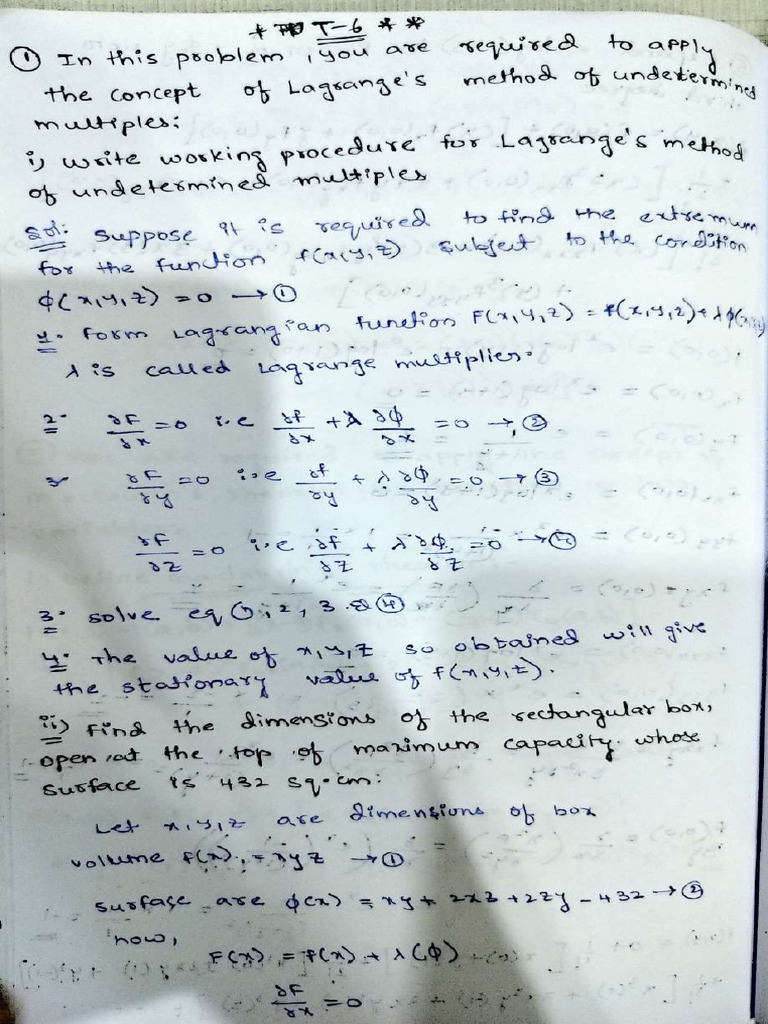 * T-6 * *
① In this problem, you are required to apply
the concept of Lagrange's method of undetermined
multiples:
i) write working procedure for Lagrange's method
of undetermined multiples
Sol: suppose it is required to find the extremum
for the function f(x,y,z) subject to the condition
φ(x,y,z) = 0 → ①
1. Form Lagrangian function F(x,y,z) = f(x,y,z) + λφ(x,y,z)
λ is called Lagrange multiplier.
2. ∂F/∂x = 0 i.e ∂f/∂x + λ ∂φ/∂x = 0 → ②
∂F/∂y = 0 i.e ∂f/∂y + λ ∂φ/∂y = 0 → ③
∂F/∂z = 0 i.e ∂f/∂z + λ ∂φ/∂z = 0 → ④
3. solve eq ①, 2, 3 & ④
4. The value of x,y,z so obtained will give
the stationary value of f(x,y,z).
ii) Find the dimensions of the rectangular box,
open at the top of maximum capacity whose
surface is 432 sq.cm:
Let x,y,z are dimensions of box
volume f(x) = xyz → ①
surface are φ(x) = xy + 2xz + 2zy - 432 → ②
now,
F(x) = f(x) + λ(φ)
∂F/∂x = 0